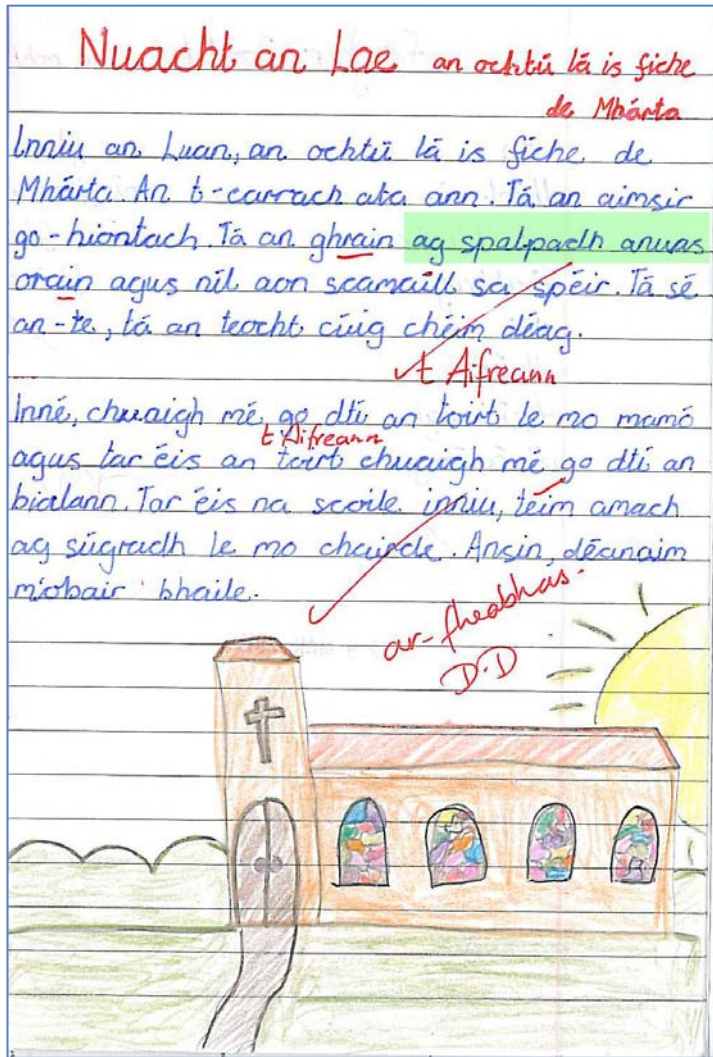 Nuacht an Lae an ochtú lá is fiche
de Mhárta
Inniu an Luan, an ochtú lá is fiche de
Mhárta. An t-earrach ata ann. Tá an aimsir
go-hiontach. Tá an ghrain ag spalpadh anuas
orain agus níl aon scamaill sa spéir. Tá sé
an-te, tá an teocht cúig chéim déag.
t Aifreann
Inné, chuaigh mé go dtí an toirt le mo mamó
t Aifreann
agus tar éis an toirt chuaigh mé go dtí an
bialann. Tar éis na scoile inniu, téim amach
ag súgradh le mo chairde. Ansin, déanaim
m'obair bhaile.
ar-fheabhas.
D.D